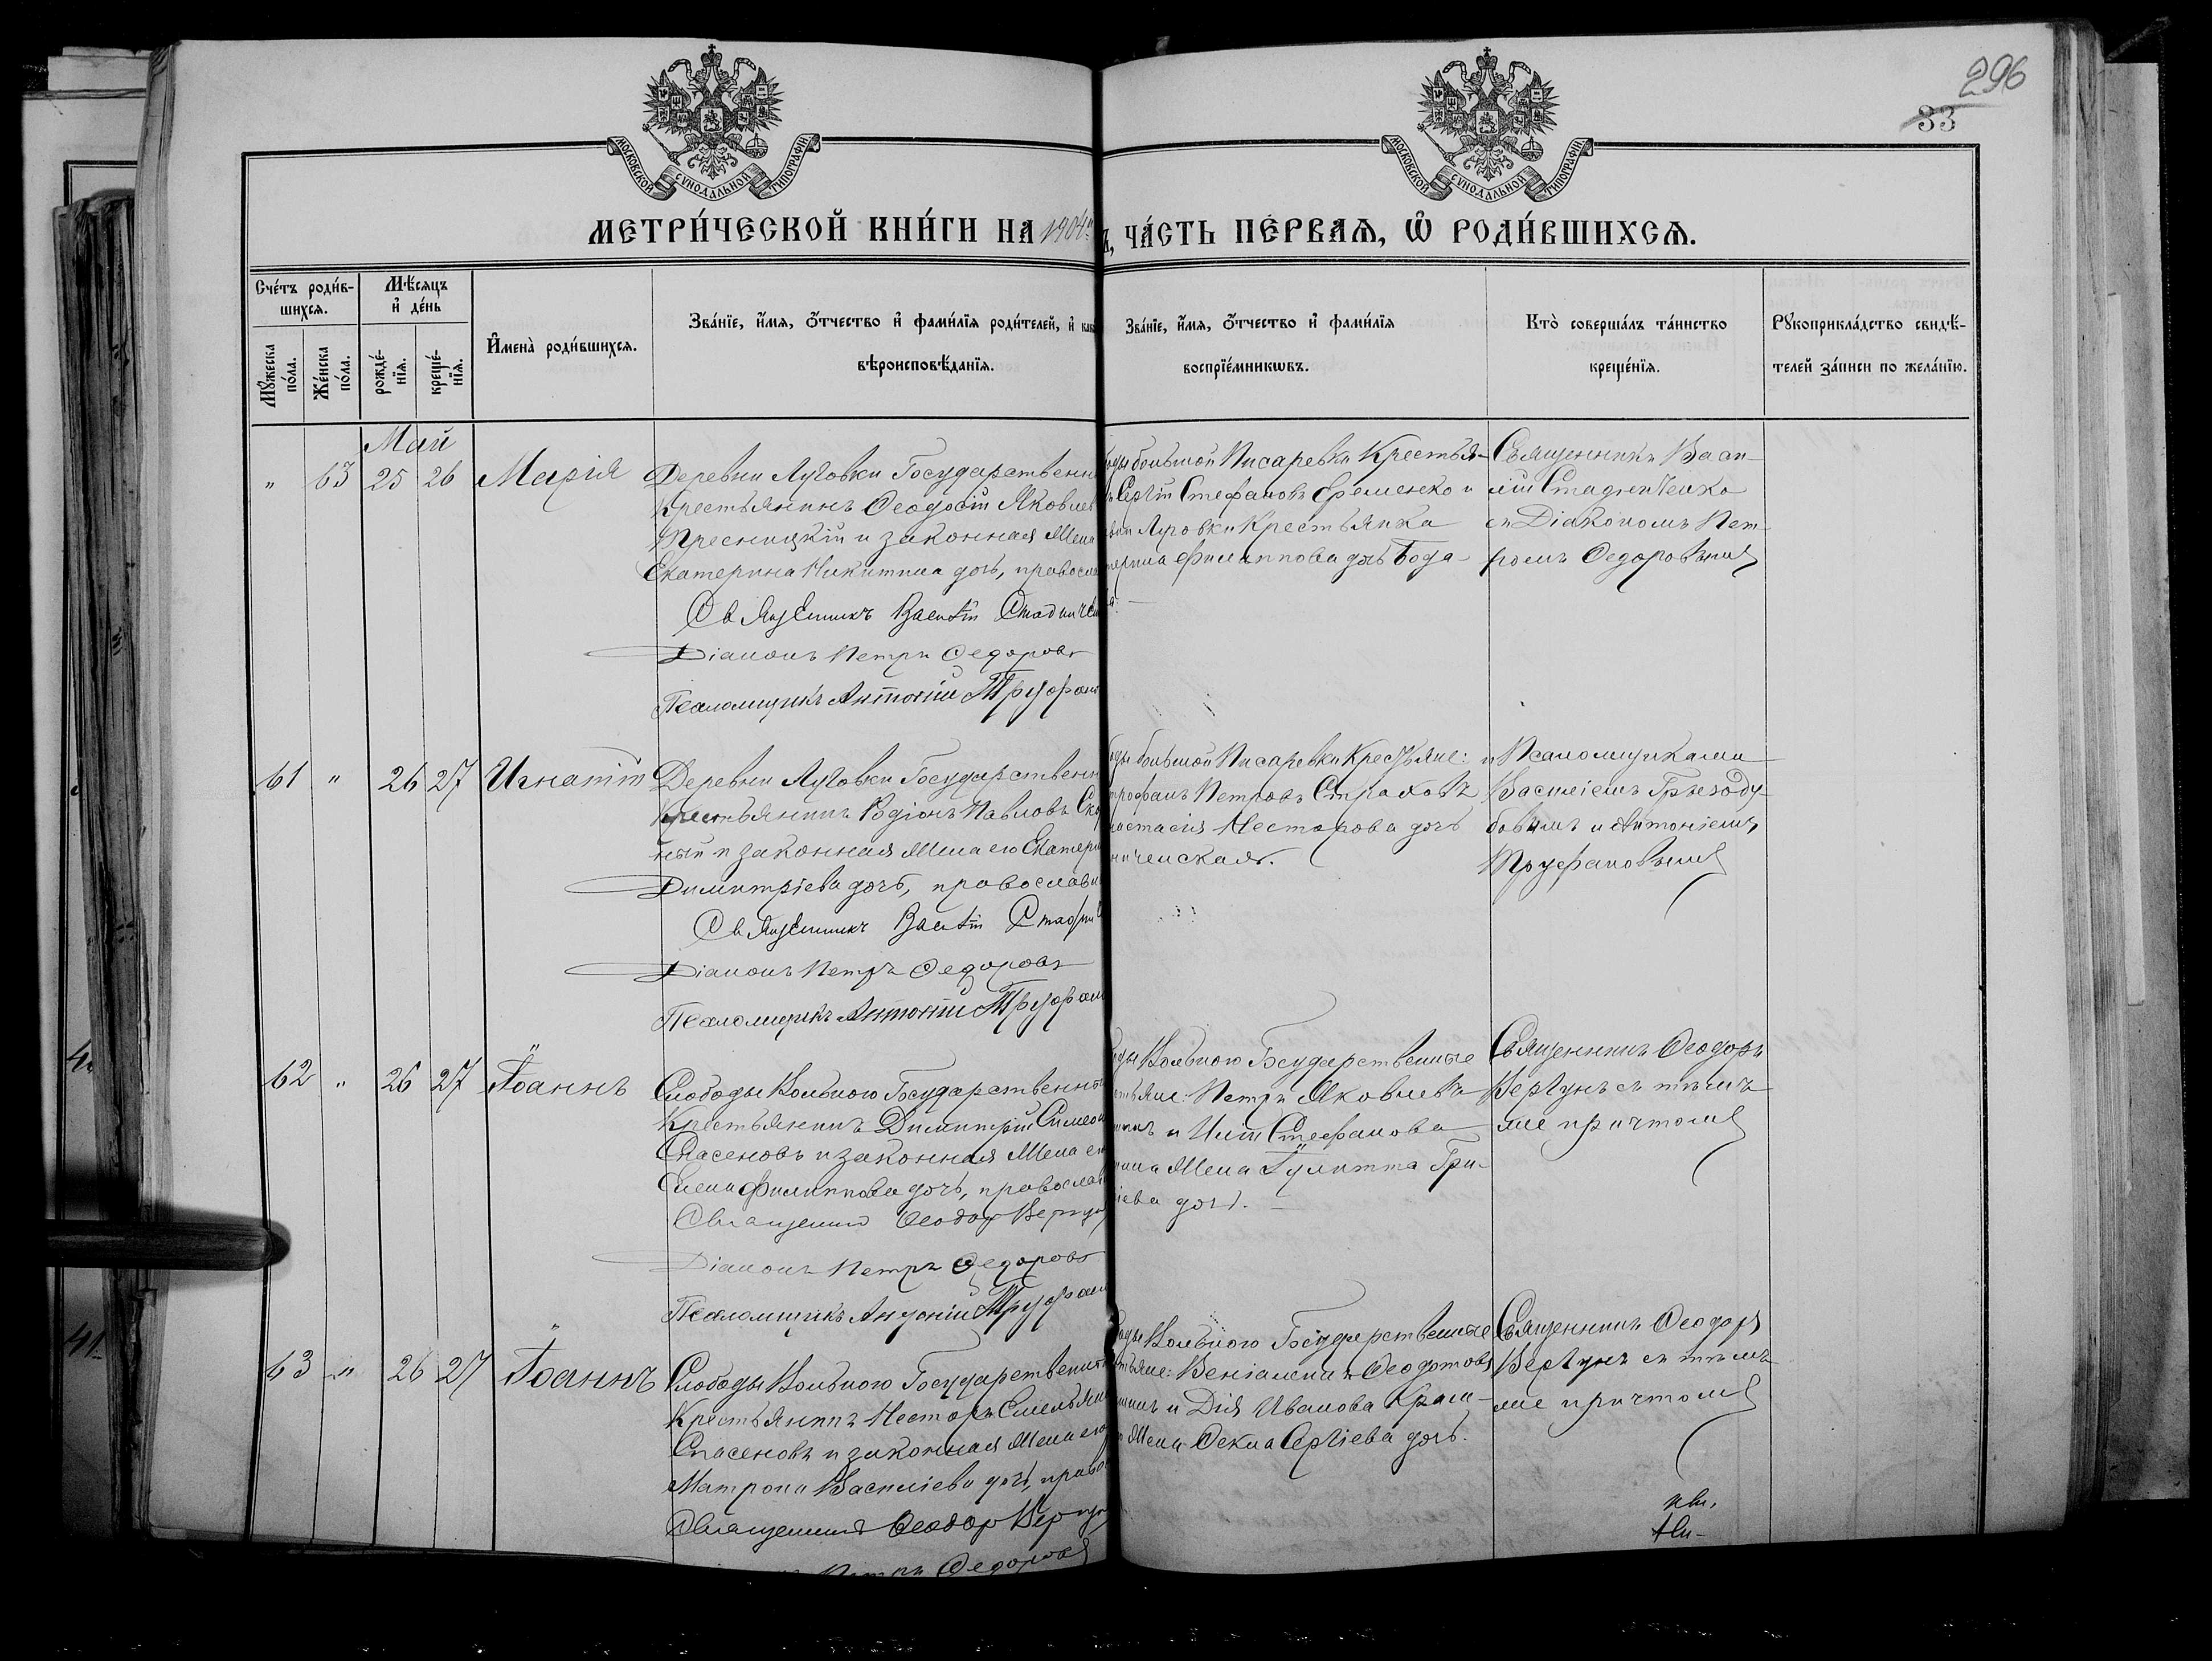 296
33
МОСКОВСКОЙ СѴНОДАЛЬНОЙ ТИПОГРАФІИ
МОСКОВСКОЙ СѴНОДАЛЬНОЙ ТИПОГРАФІИ
МЕТРИ́ЧЕСКОЙ КНИ́ГИ НА 1904
Ъ, ЧА́СТЬ ПЕ́РВАЯ, Ѡ РОДИ́ВШИХСЯ.
Сче́тъ роди́в-
шихся.
Мꙋжеска по́ла.
Же́нска по́ла.
Мѣ́сяцъ
и де́нь
рожде́-
нїя.
креще́-
нїя.
Имена̀ роди́вшихся.
Зва́нїе, и́мя, о́тчество и фами́лїя роди́телей, и как
вѣроисповѣ́данїя.
Зва́нїе, и́мя, о́тчество и фами́лїя
воспрїе́мникωвъ.
Кто̀ соверша́лъ та́инство
креще́нїя.
Рꙋкоприкла́дство свидѣ́-
телей за́писи по жела́нїю.
Май
" 63 25 26 Марія
Деревни Луговки Государственн
Крестьянинъ Ѳеодосій Яковлев
Пресницкій и законная жена
Екатерина Никитина дочь, правосла
Священникъ Василій Стадниче
Діаконъ Петръ Ѳедоровъ
Псаломщикъ Антоній Труфан
оды большой Писаревки Крестья-
Сергій Стефановъ Еременко и
вни Луговки Крестьянка
терина Филиппова дочь Бода-
Священникъ Васи-
лій Стадниченко
съ Діакономъ Пет-
ромъ Ѳедоровымъ
61 " 26 27 Игнатій
Деревни Луговки Государственн
Крестьянинъ Родіонъ Павловъ Ско
ный и законная жена его Екатери
Димитріева дочь, православн
Священникъ Василій Стадни
Діаконъ Петръ Ѳедоровъ
Псаломщикъ Антоній Труфан
оды большой Писаревки Крестьяне:
трофанъ Петровъ Страховъ
настасія Несторова дочь
ниченская.
и Псаломщиками
Василіемъ Грызоду-
бовымъ и Антоніемъ
Труфановымъ
62 " 26 27 Іоаннъ
Слободы Вольного Государственны
Крестьянинъ Димитрій Симеон
Спасеновъ и законная жена ег
Елена Филиппова дочь, правосла
Священникъ Ѳеодоръ Вергун
Діаконъ Петръ Ѳедоровъ
Псаломщикъ Антоній Труфан
оды Вольного Государственные
стьяне: Петръ Яковлевъ
и Иліи Стефанова
жена Іулитта Гри-
іева дочь.
Священникъ Ѳеодоръ
Вергунъ съ тѣмъ
же причтомъ
63 " 26 27 Іоаннъ
Слободы Вольного Государственны
Крестьянинъ Несторъ Емельян
Спасеновъ и законная жена его
Матрона Василіева дочь, право
Священникъ Ѳеодоръ Вергун
Петръ Ѳедоровъ
оды Вольного Государственные
стьяне: Веніаминъ Ѳеодотовъ
и Дія Иванова Крам-
жена Ѳекла Сергіева дочь.
Священникъ Ѳеодоръ
Вергунъ съ тѣмъ
же причтомъ